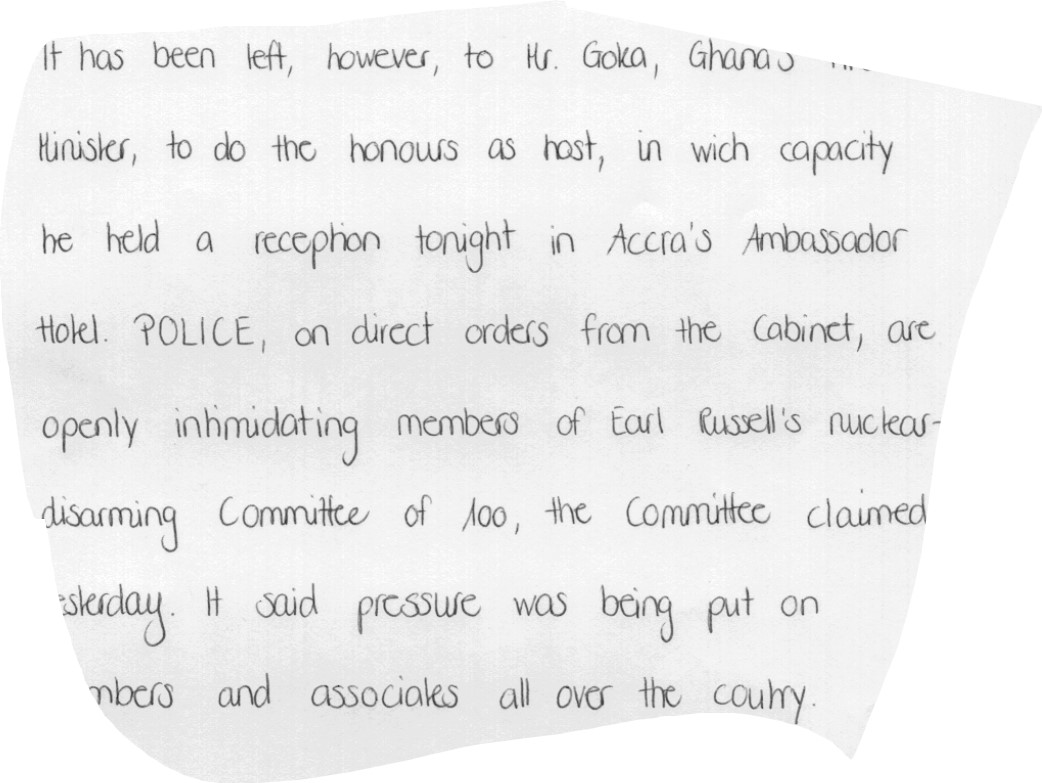 It has been left, however, to Mr. Goka, Ghana's
Minister, to do the honours as host, in wich capacity
he held a reception tonight in Accra's Ambassador
Hotel. POLICE, on direct orders from the Cabinet, are
openly intimidating members of Earl Russell's nuclear-
disarming Committee of 100, the Committee claimed
esterday. It said pressure was being put on
mbers and associates all over the coutry.